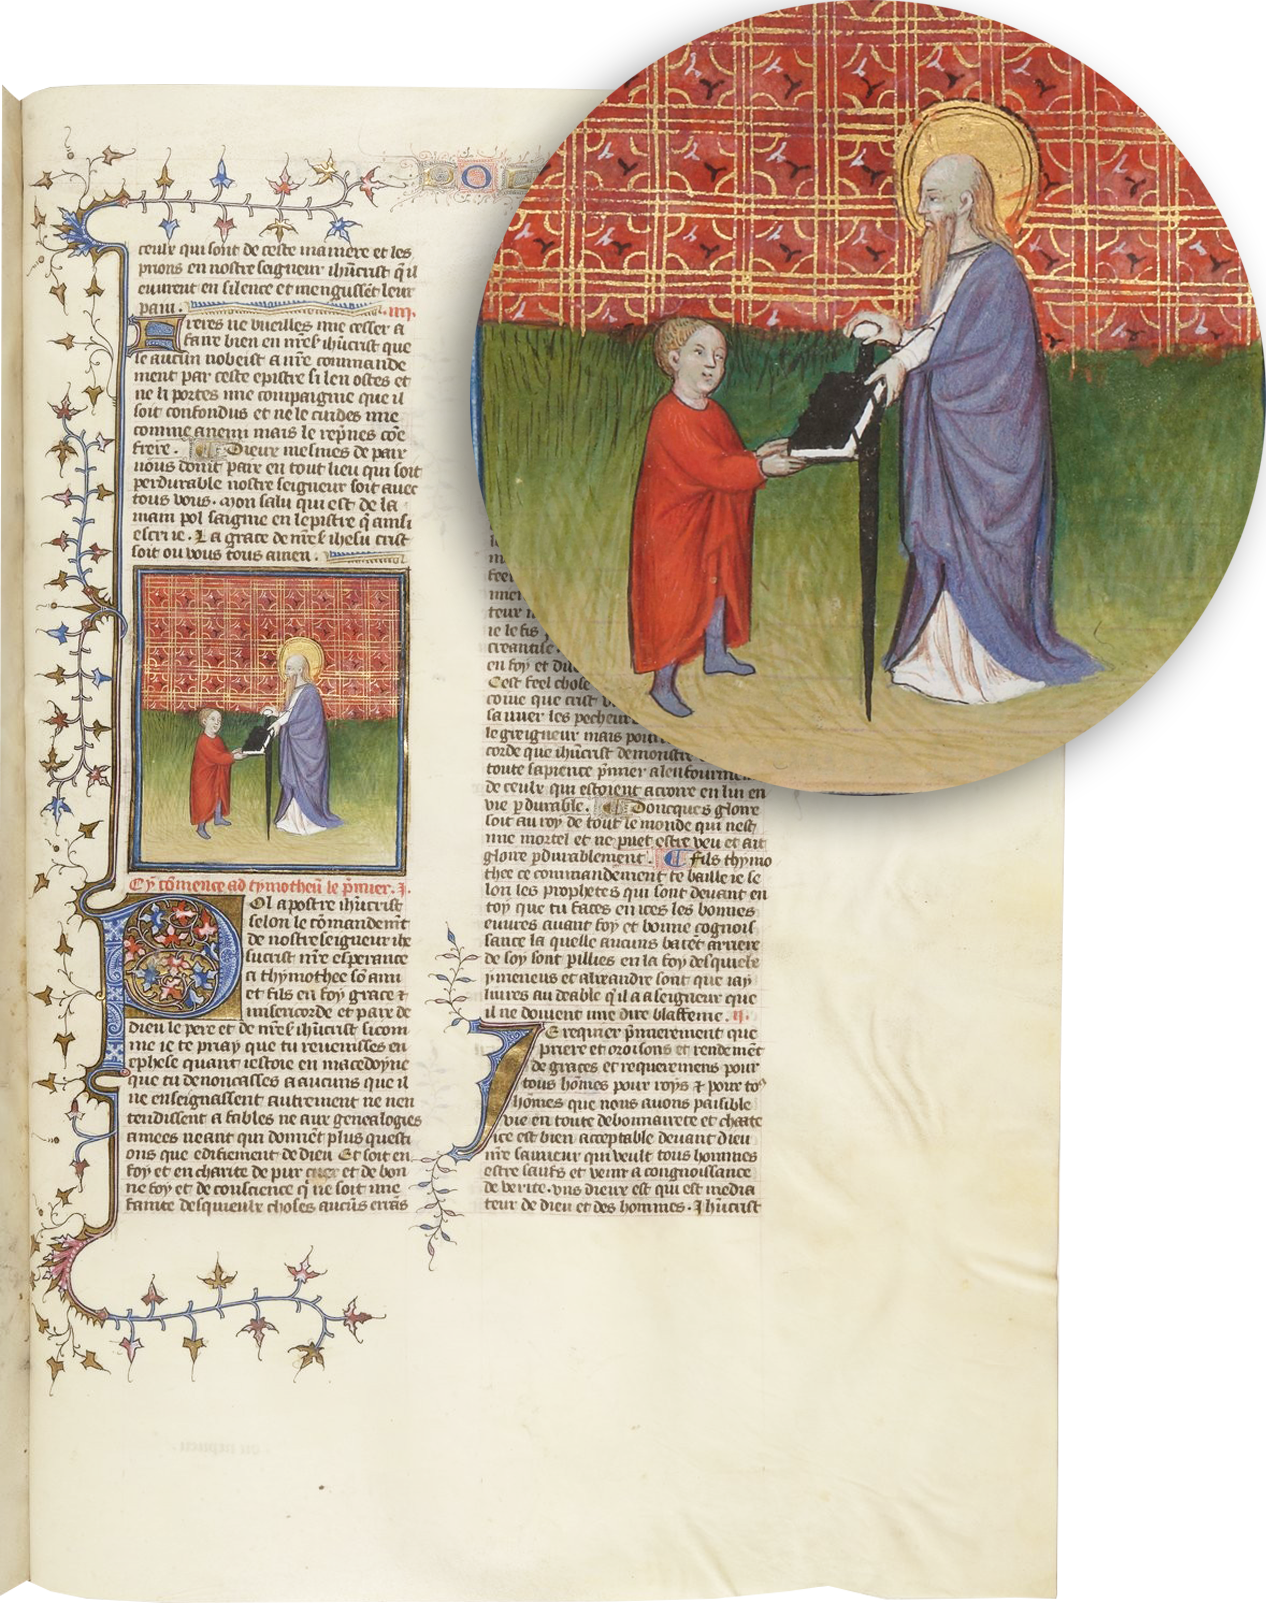 O
ceulx qui sont de ceste maniere et les
prions en nostre seigneur ihūcrist q̄ il
euurent en silence et mengussēt leur
pain. iiij.
Freres ne vueilles mie cesser a
faire bien en nr̄e s̄ ihūcrist que
se aucun nobeist a nr̄e commande
ment par ceste epistre si len ostes et
ne li portes mie compaignie que il
soit confondus et ne le cuides mie
comme anemi mais le repn̄es cōe
frere. Dieux mesmes de paix
vous doint paix en tout lieu qui soit
perdurable nostre seigneur soit auec
tous vous. Mon salu qui est de la
main pol saigne en lepistre q̄ ainsi
escrie. La grace de nr̄e s̄ ihesu crist
soit ou vous tous amen.
Cy cōmence ad tymotheū le p̄mier. j.
Pol apostre ihūcrist
selon le cōmandemēt
de nostre seigneur ihe
sucrist nr̄e esperance
a thymothee sō ami
et fils en foy grace ⁊
misericorde et paix de
dieu le pere et de nr̄e s̄ ihūcrist si com
me ie te priay que tu reuenisses en
ephese quant iestoie en macedoyne
que tu denoncasses a aucuns que il
ne enseignassent autrement ne nen
tendissent a fables ne aux genealogies
qui donnēt plus questi
ons que edifiement de dieu Et soit en
foy et en charite de pur cuer et de bon
ne foy et de conscience q̄ ne soit mie
fainte desquielx choses aucūs errās
ie le fis
creantise
en foy et
Cest feel chose
come que crist
sauuer les pecheurs
le greigneur mais pour
corde que ihūcrist demonstre
toute sapience p̄mier
de ceulx qui estoient a croire en lui en
vie p̱durable. Doncques gloire
soit au roy de tout le monde qui nest
mie mortel et ne puet estre veu et ait
gloire p̱durablement. Fils thymo
thee ce commandement te baille ie se
lon les prophetes qui sont deuant en
toy que tu faces en ices les bonnes
euures auant foy et bonne cognois
sance la quelle aucuns batēt arriere
de soy sont p̱illies en la foy desquielx
ymeneus et alixandre sont que iay
liures au deable q̄ il a a seigneur que
il ne doiuent mie dire blaffeme. ij.
Je requier p̄mierement que
priere et oroisons et rendemēt
de graces et requeremens pour
tous hōmes pour roys ⁊ pour to⁹
hōmes que nous auons paisible
vie en toute debonnairete et chaste
ice est bien acceptable deuant dieu
nr̄e sauueur qui veult tous hommes
estre saufs et venir a congnoissance
de verite. vns dieux est qui est media
teur de dieu et des hommes. Ihūcrist